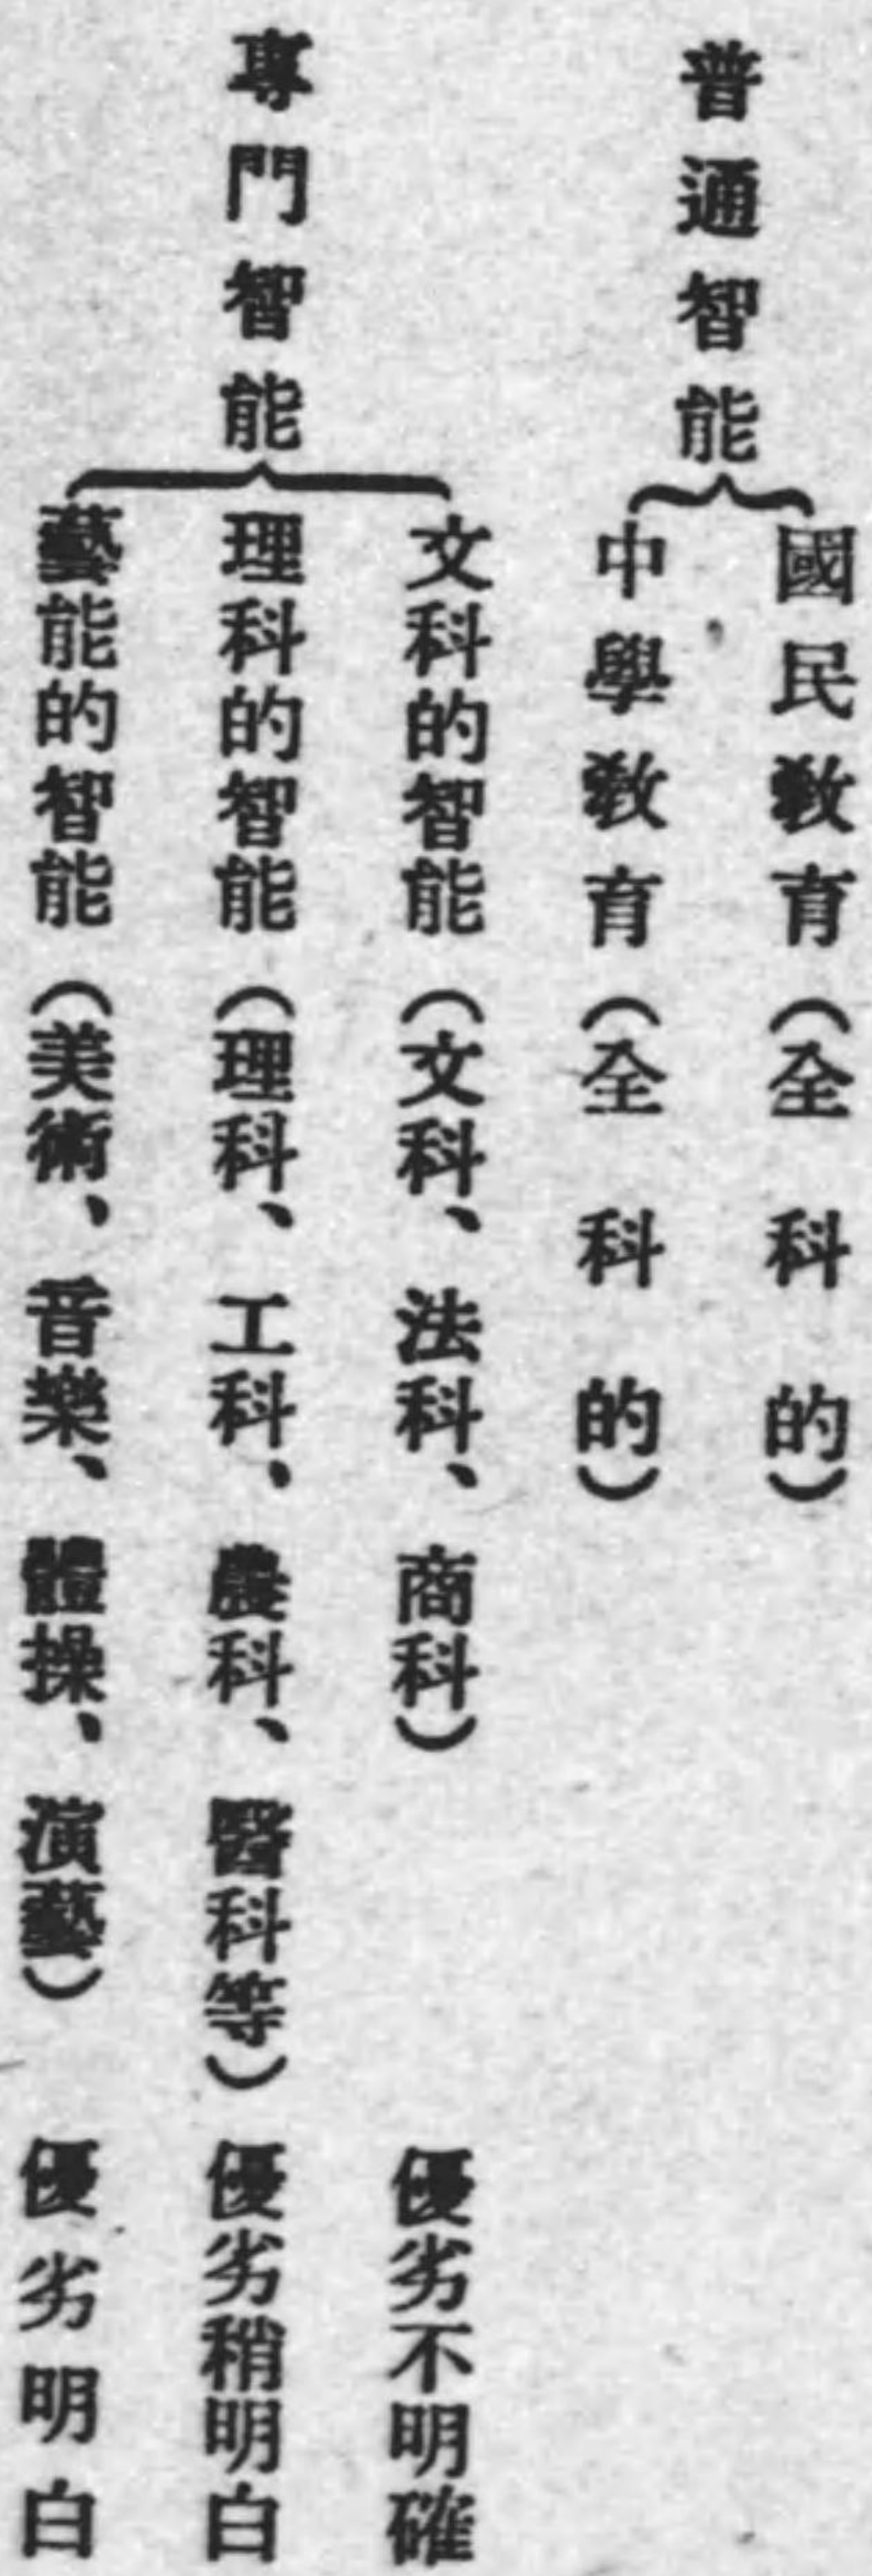 普通智能
國民教育(全科的)
中學教育(全科的)
專門智能
文科的智能(文科、法科、商科)優劣不明確
理科的智能(理科、工科、農科、醫科等)優劣稍明白
藝能的智能(美術、音樂、體操、演藝)優劣明白